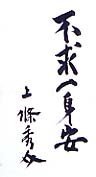 不求一身安
上條秀介